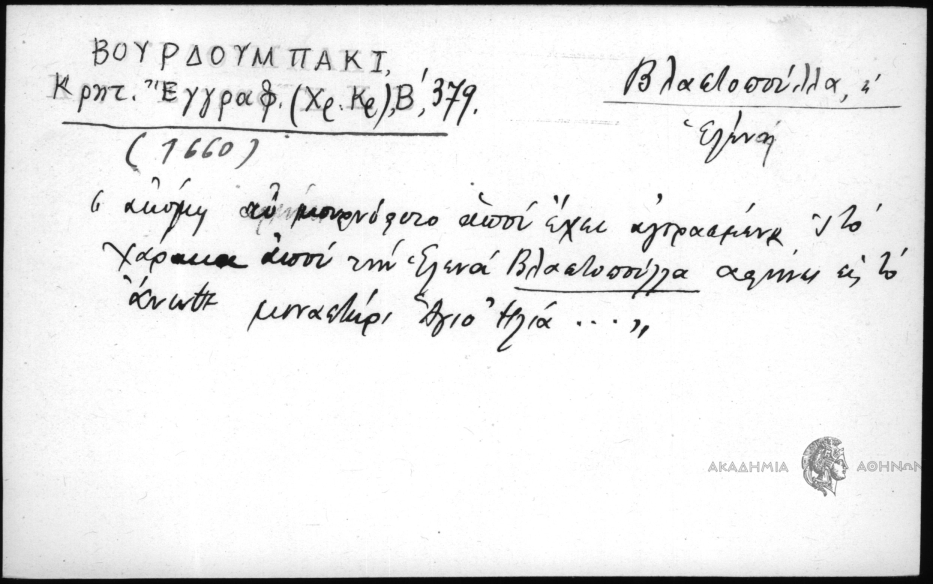 ΒΟΥΡΔΟΥΜΠΑΚΙ,
Κρητ. Ἔγγραφ. (Χρ. Κρ), Β΄, 379.
(1660)
Βλαστοπούλλα, ἡ
Ἑλένη
ἀκόμη μουρνόφυτο ἀποὺ ἔχει ἀγορασμένα 'ς τὸ
Χάρακα ἀποὺ τὴν Ἑλενά Βλαστοπούλλα ἀφήνει εἰς τὸ
ἄνωθε μοναστήρι Ἅγιο Ἠλία ... „
ΑΚΑΔΗΜΙΑ ΑΘΗΝΩΝ